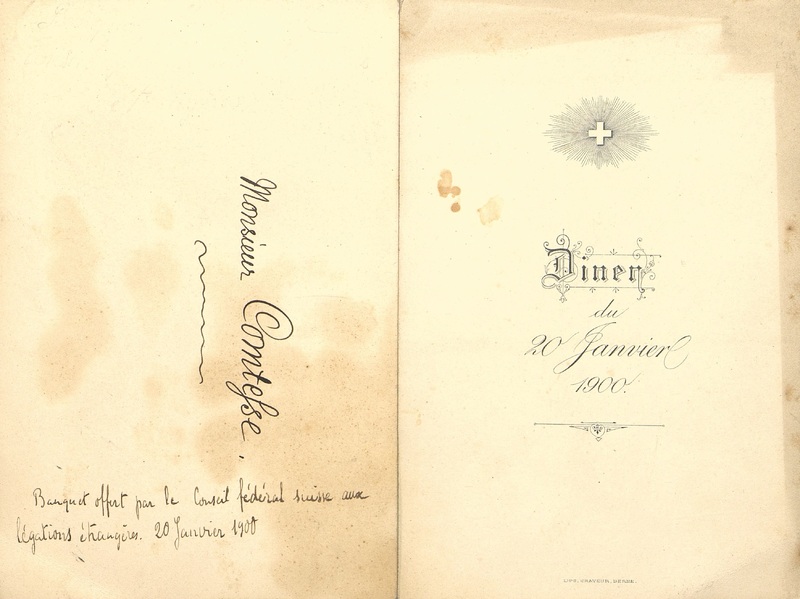 Monsieur Comtesse.
Banquet offert par le Conseil fédéral suisse aux
légations étrangères. 20 Janvier 1900
Diner
du
20 Janvier
1900.
LIPS, GRAVEUR, BERNE.